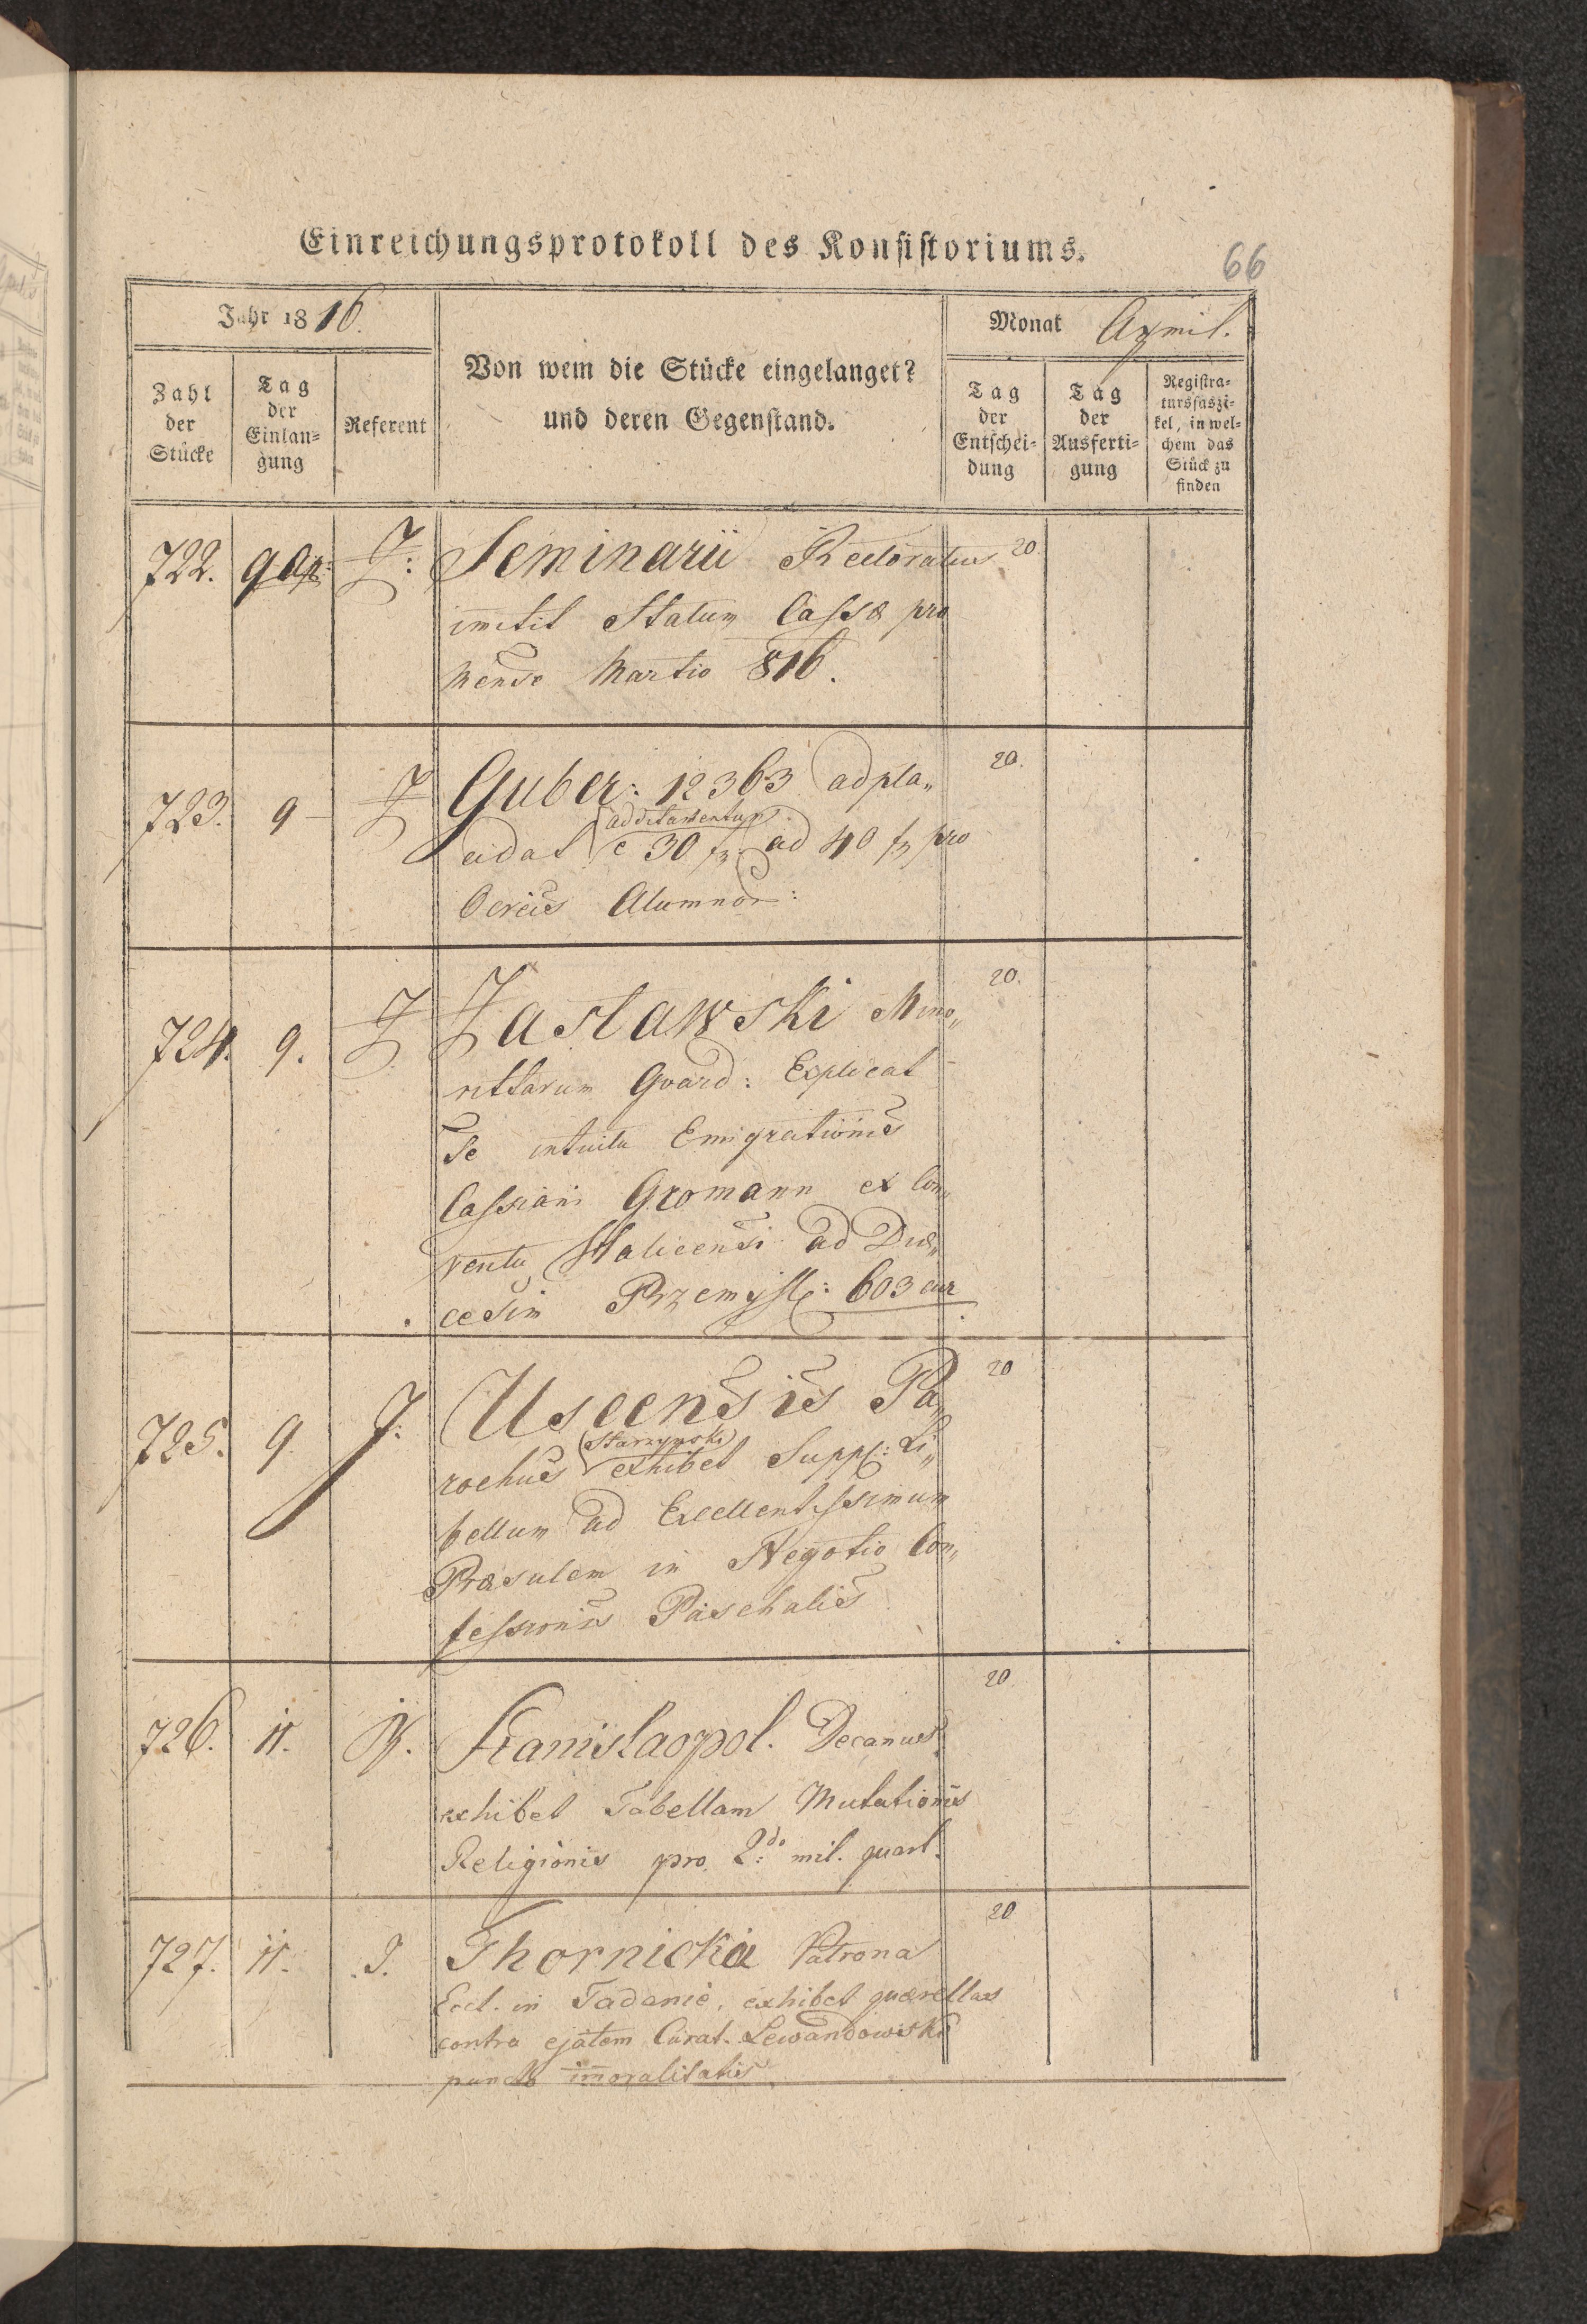 Einreichungsprotokoll des Konsistoriums.
66
Jahr 1816.
Monat April.
Zahl der Stücke
Tag der Einlan=gung
Referent
Von wem die Stücke eingelanget?
und deren Gegenstand.
Tag der Entschei=dung
Tag der Ausferti=gung
Registra=tursfaszi=kel, in wel=chem das Stück zu finden
722. 9 Ap: Z: Seminarii Rectoratus 20.
imitit Statum Cassæ pro
Mense Martio 816.
723. 9 Z Guber: 12363 adpla„ 20.
additamentum
cidat e 30 fr ad 40 fr pro
Ocreis Alumnor:
724. 9. Z Zasławski Mino„ 20.
rittarum Guard: Explicat
Se intuitu Emigrationis
Cassiani Gromann ex Con„
ventu Halicensi ad Diæ„
cesim Przemysl: 603 cur
725. 9. J: Uscensis Pa„ 20
Starzynski
rochus exhibet Suppl: Li„
bellum ad Excellentissimum
Præsulem in Negotio Con„
fessionis Paschalis
726. 11. Stanislaopol. Decanus 20.
exhibet Tabellam Mutationis
Religionis pro 2do mil. quart.
727. 11. J. Thornicka Patrona 20
Eccl. in Tadanie, exhibet quærellas
contra ejatem Curat. Lewandowiski
puncto immoralitatis